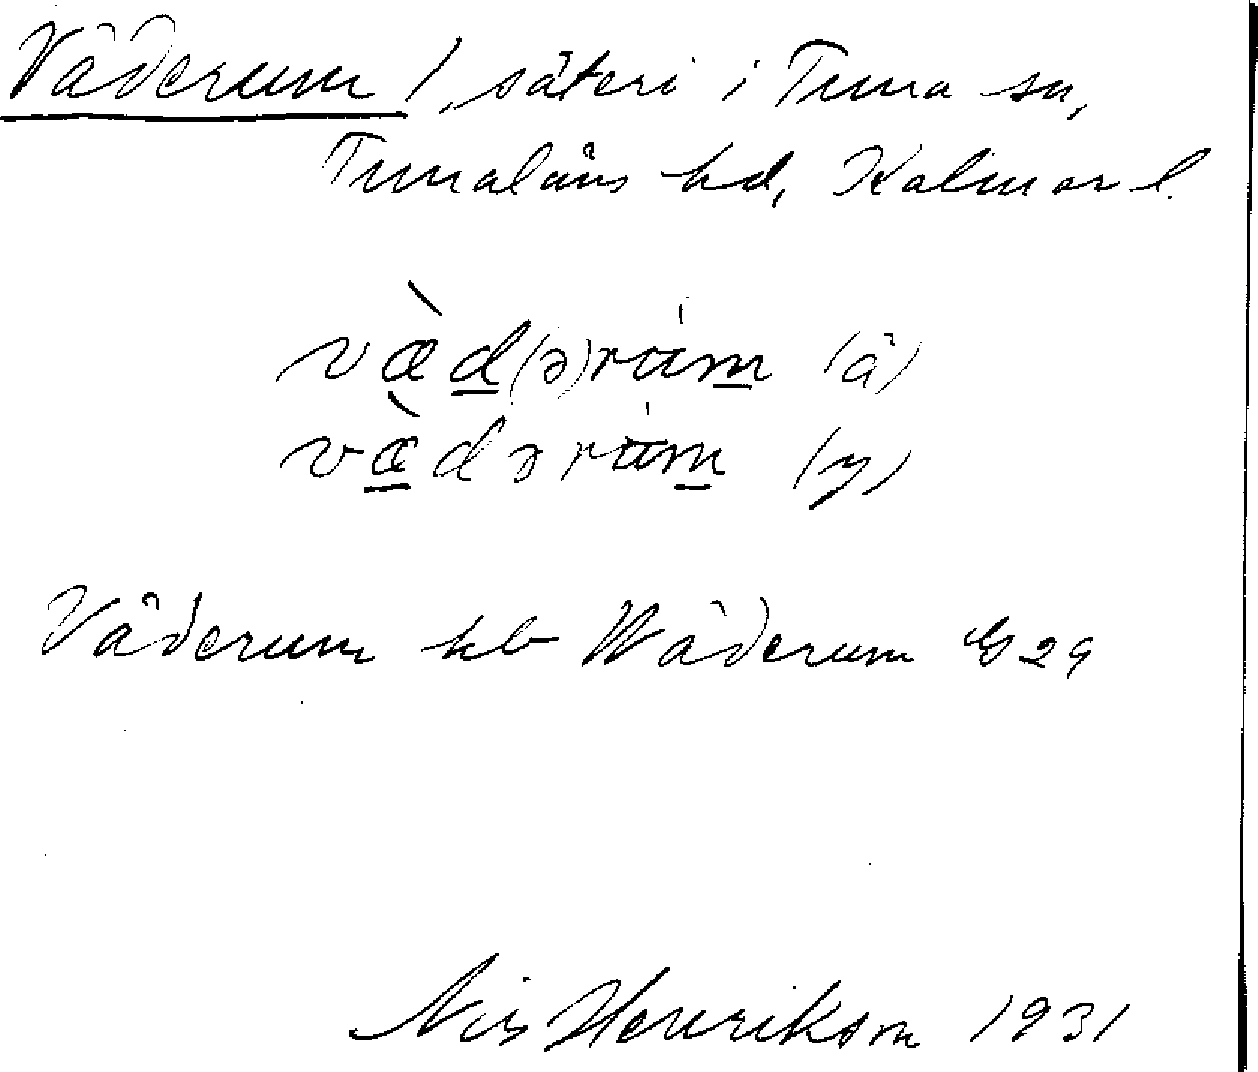 Väderum 1, säteri i Tuna sn,
Tunaläns hd, Kalmar l.
væ̀d(ə)rùm (ä)
væ̀dərùm (y)
Väderum hb Wäderum G 29
Nils Henrikson 1931